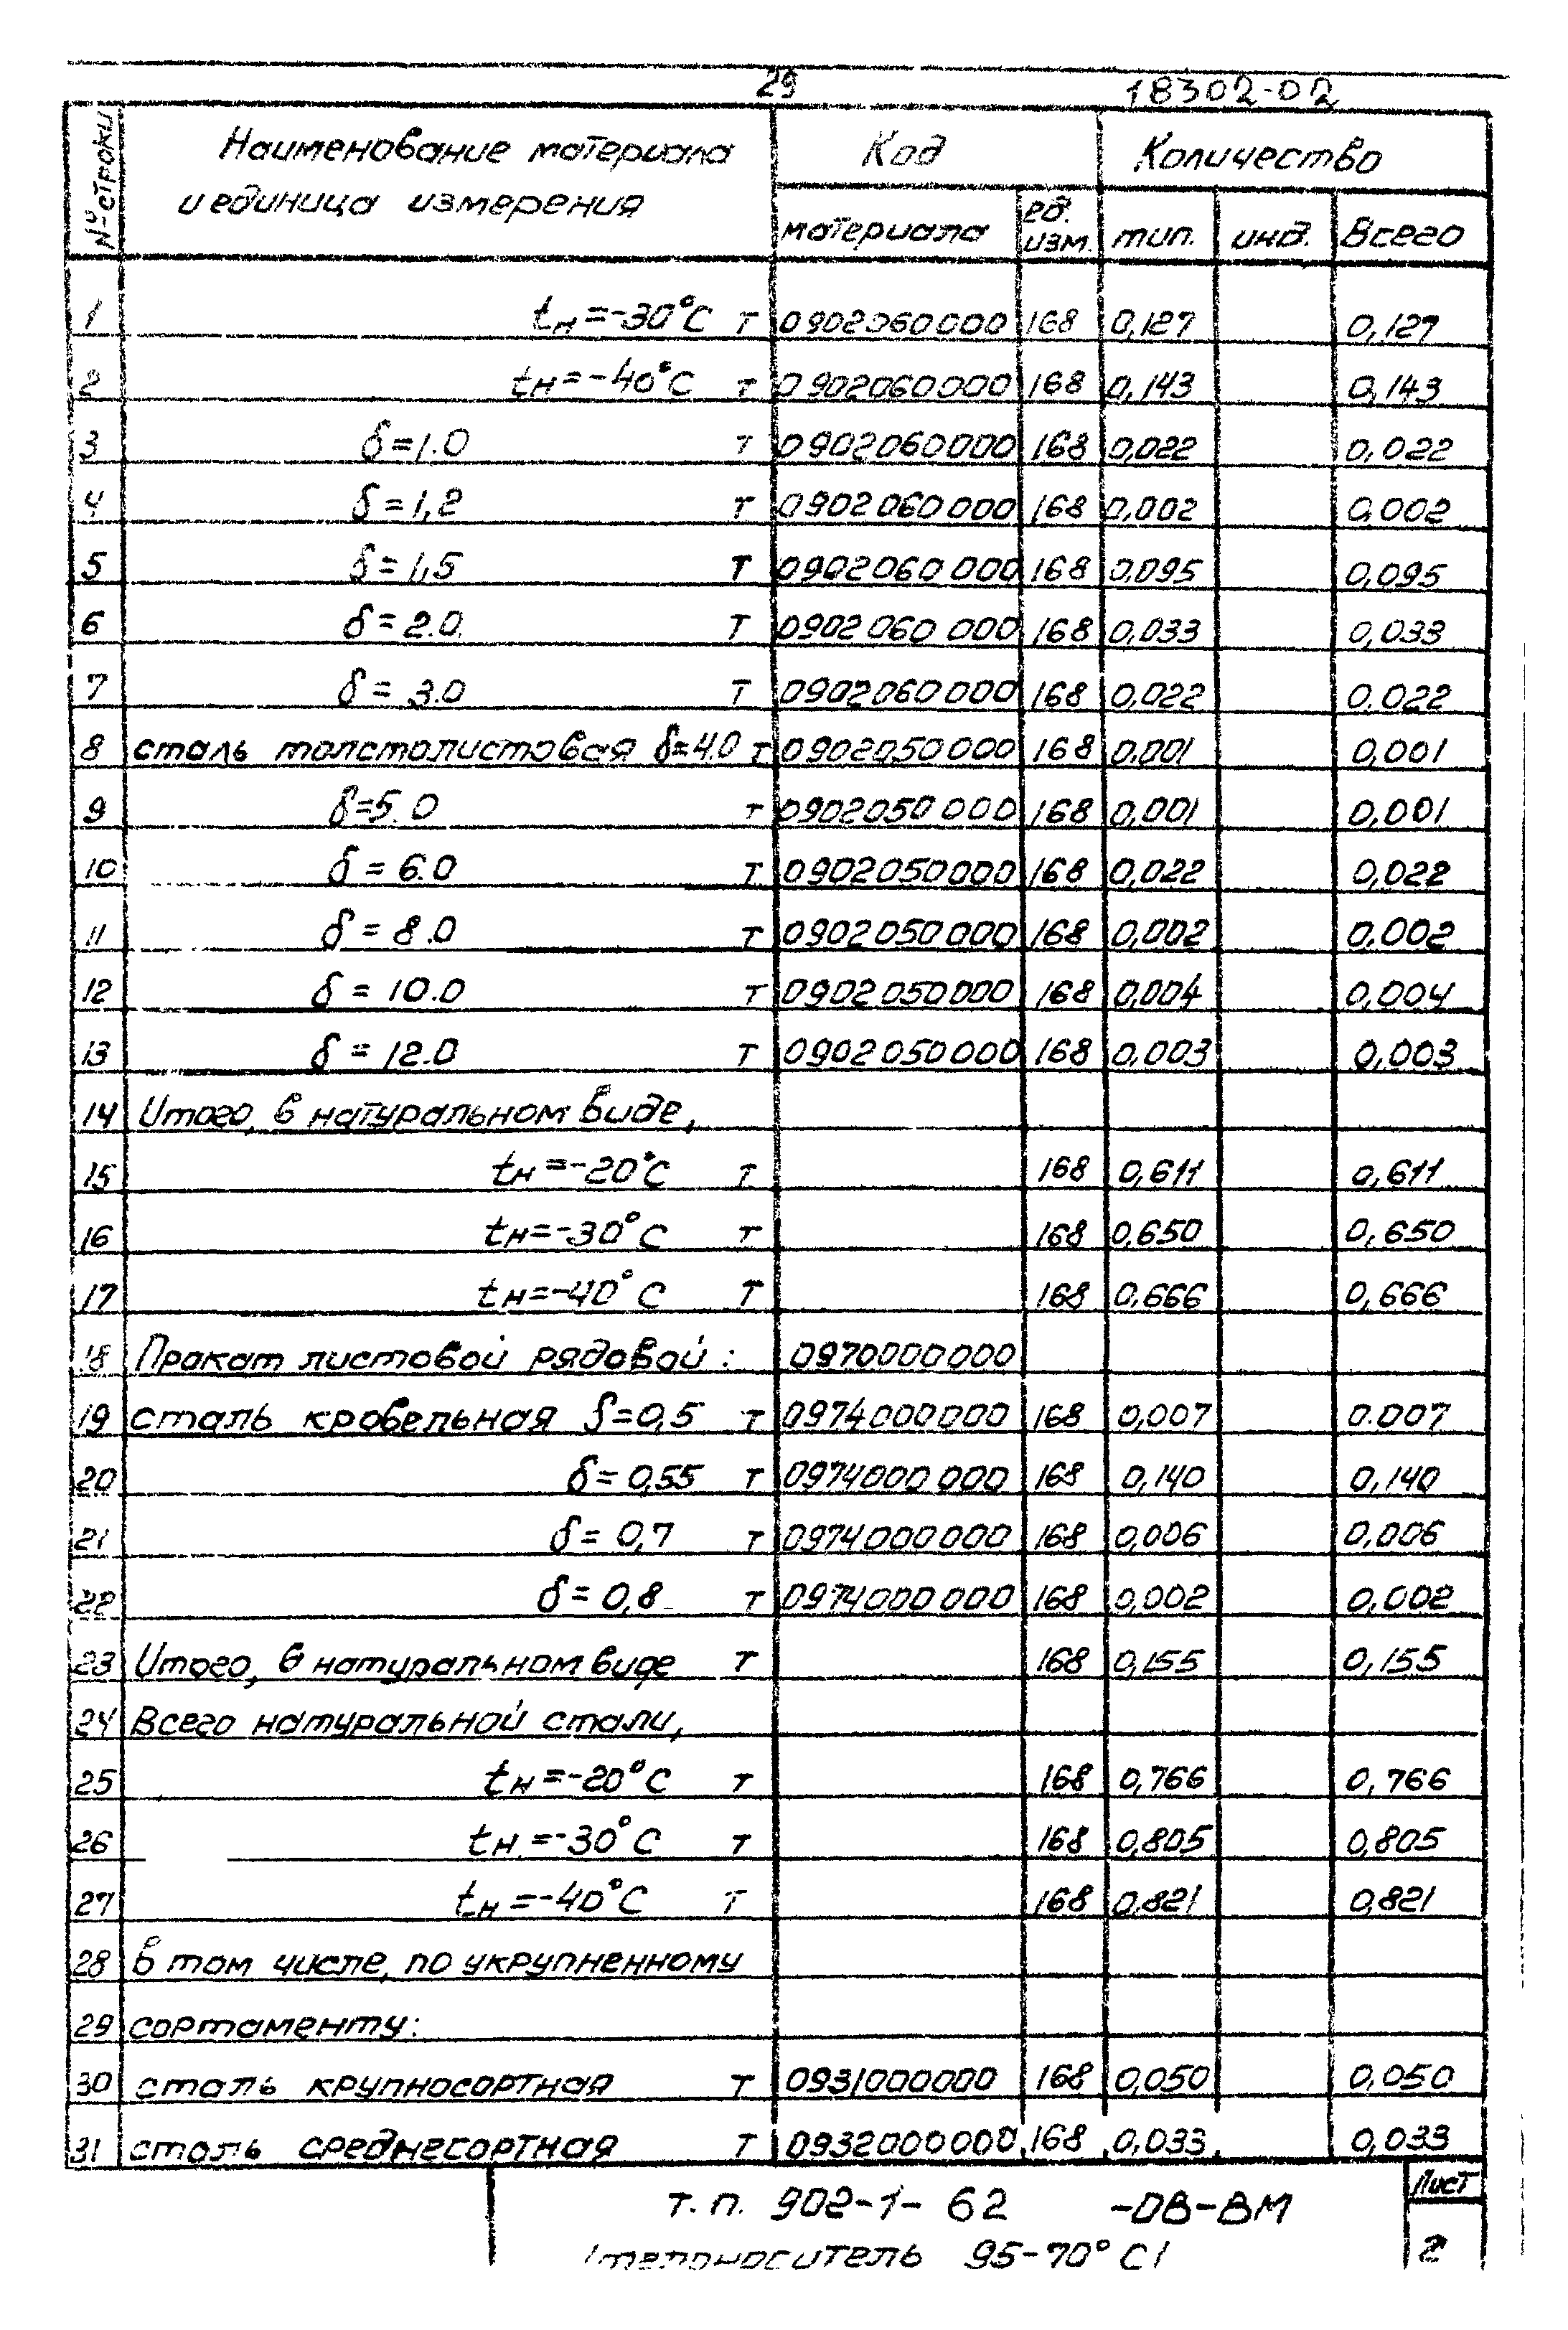 29
18302-02
№ строки
Наименование материала
и единица измерения
Код
Количество
материала
ед. изм.
тип.
инд.
Всего
1 tн=-30°C т 0902060000 168 0,127 0,127
2 tн=-40°C т 0902060000 168 0,143 0,143
3 δ=1.0 т 0902060000 168 0,022 0,022
4 δ=1,2 т 0902060000 168 0,002 0,002
5 δ=1,5 т 0902060000 168 0,095 0,095
6 δ=2.0 т 0902060000 168 0,033 0,033
7 δ=3.0 т 0902060000 168 0,022 0,022
8 сталь толстолистовая δ=4.0 т 0902050000 168 0,001 0,001
9 δ=5.0 т 0902050000 168 0,001 0,001
10 δ=6.0 т 0902050000 168 0,022 0,022
11 δ=8.0 т 0902050000 168 0,002 0,002
12 δ=10.0 т 0902050000 168 0,004 0,004
13 δ=12.0 т 0902050000 168 0,003 0,003
14 Итого, в натуральном виде,
15 tн=-20°C т 168 0,611 0,611
16 tн=-30°C т 168 0,650 0,650
17 tн=-40°C т 168 0,666 0,666
18 Прокат листовой рядовой: 0970000000
19 сталь кровельная δ=0,5 т 0974000000 168 0,007 0.007
20 δ=0,55 т 0974000000 168 0,140 0,140
21 δ=0,7 т 0974000000 168 0,006 0,006
22 δ=0,8 т 0974000000 168 0,002 0,002
23 Итого, в натуральном виде т 168 0,155 0,155
24 Всего натуральной стали,
25 tн=-20°C т 168 0,766 0,766
26 tн=-30°C т 168 0,805 0,805
27 tн=-40°C т 168 0,821 0,821
28 в том числе, по укрупненному
29 сортаменту:
30 сталь крупносортная т 0931000000 168 0,050 0,050
31 сталь среднесортная т 0932000000 168 0,033 0,033
т.п. 902-1-62 -ОВ-ВМ
Лист
(теплоноситель 95-70°C)
2